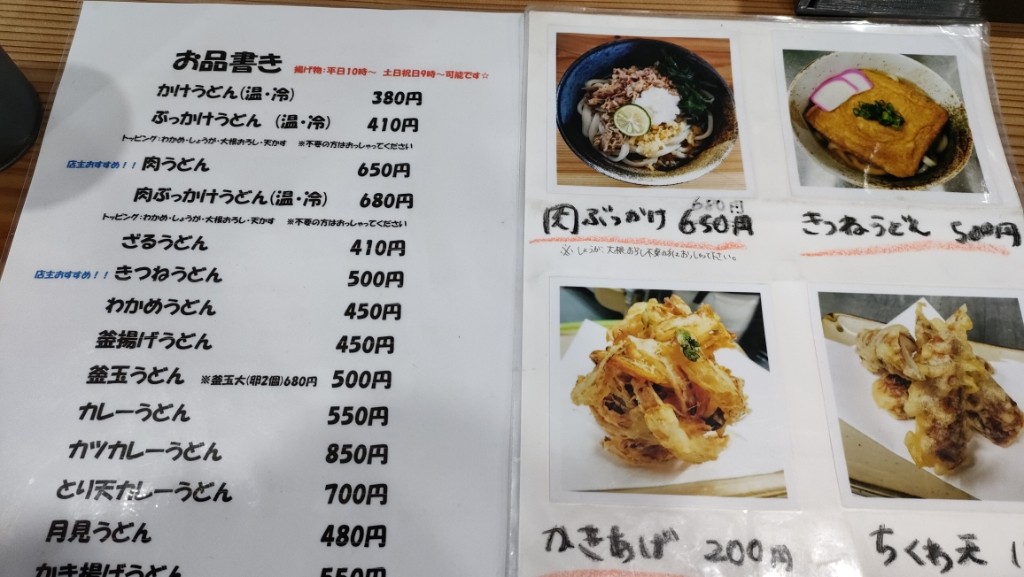 お品書き 揚げ物:平日10時～ 土日祝日9時～可能です☆
かけうどん(温・冷) 380円
ぶっかけうどん (温・冷) 410円
トッピング:わかめ・しょうが・大根おろし・天かす ※不要の方はおっしゃってください
店主おすすめ!! 肉うどん 650円
肉ぶっかけうどん(温・冷) 680円
トッピング:わかめ・しょうが・大根おろし・天かす ※不要の方はおっしゃってください
ざるうどん 410円
店主おすすめ!! きつねうどん 500円
わかめうどん 450円
釜揚げうどん 450円
釜玉うどん ※釜玉大(卵2個)680円 500円
カレーうどん 550円
カツカレーうどん 850円
とり天カレーうどん 700円
月見うどん 480円
かき揚げうどん 550円
680円
肉ぶっかけ 650円
※しょうが、大根おろし不要の方はおっしゃって下さい。
きつねうどん 500円
かきあげ 200円
ちくわ天